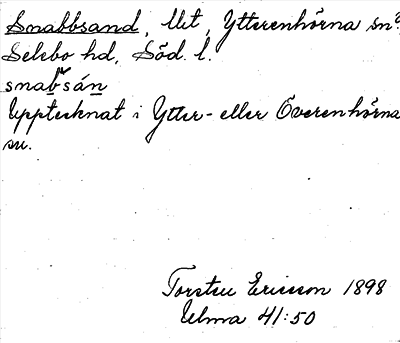 Snabbsand, Utt, Ytterenhörna sn?
Selebo hd, Söd. l.
snab̀sán
Upptecknat i Ytter- eller Överenhörna
sn.
Torsten Ericsson 1898
Ulma 41:50